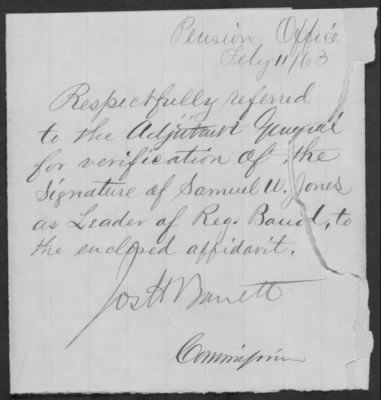 Pension Office
Feby 11/63
Respectfully referred
to the Adjutant General
for verification of the
Signature of Samuel W. Jones
as Leader of Reg. Band, to
the enclosed affidavit.
Jos H Barrett
Commissioner